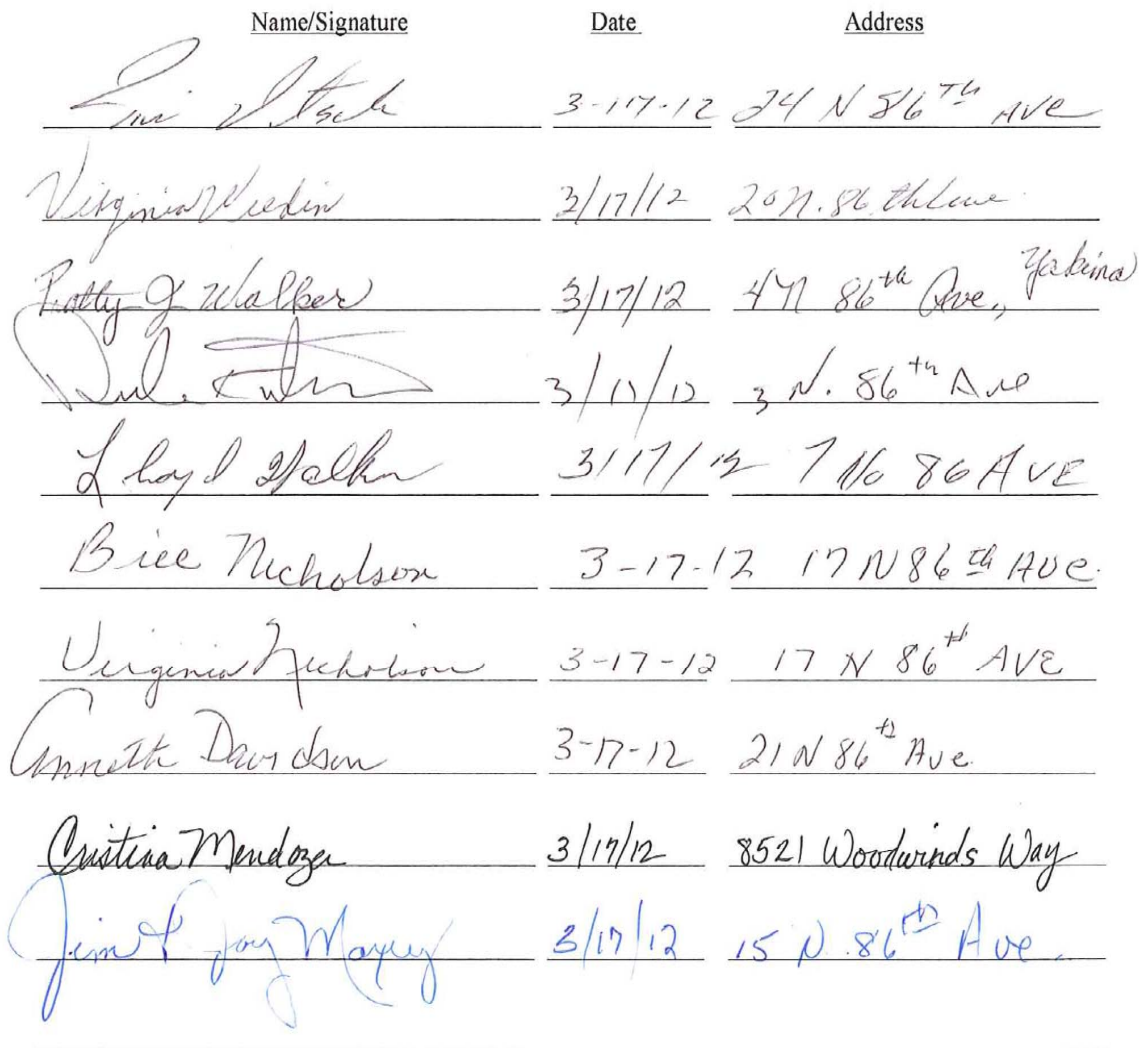 Name/Signature Date Address
3-17-12 24 N 86TH AVE
Virginia 3/17/12 20 N. 86th Ave
Patty J Walker 3/17/12 4 N 86th Ave., Yakima
3/17/12 3 N. 86th Ave
Lloyd Walker 3/17/12 7 No 86 AVE
Bill Nicholson 3-17-12 17 N 86th AVE.
Virginia Nicholson 3-17-12 17 N 86th AVE
Anneth Davidson 3-17-12 21 N 86th Ave.
Cristina Mendoza 3/17/12 8521 Woodwinds Way
Jim & Joy Maxey 3/17/12 15 N. 86th Ave.